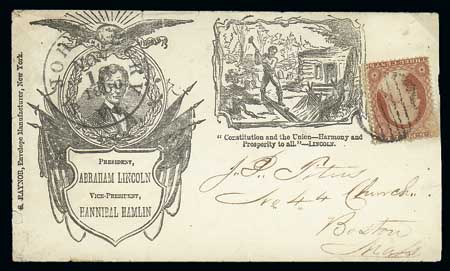 S. RAYNOR, Envelope Manufacturer, New York.
PRESIDENT,
ABRAHAM LINCOLN
VICE-PRESIDENT,
HANNIBAL HAMLIN
"Constitution and the Union—Harmony and
Prosperity to all."—LINCOLN.
J. P.
No 44 Church
Boston
Mass